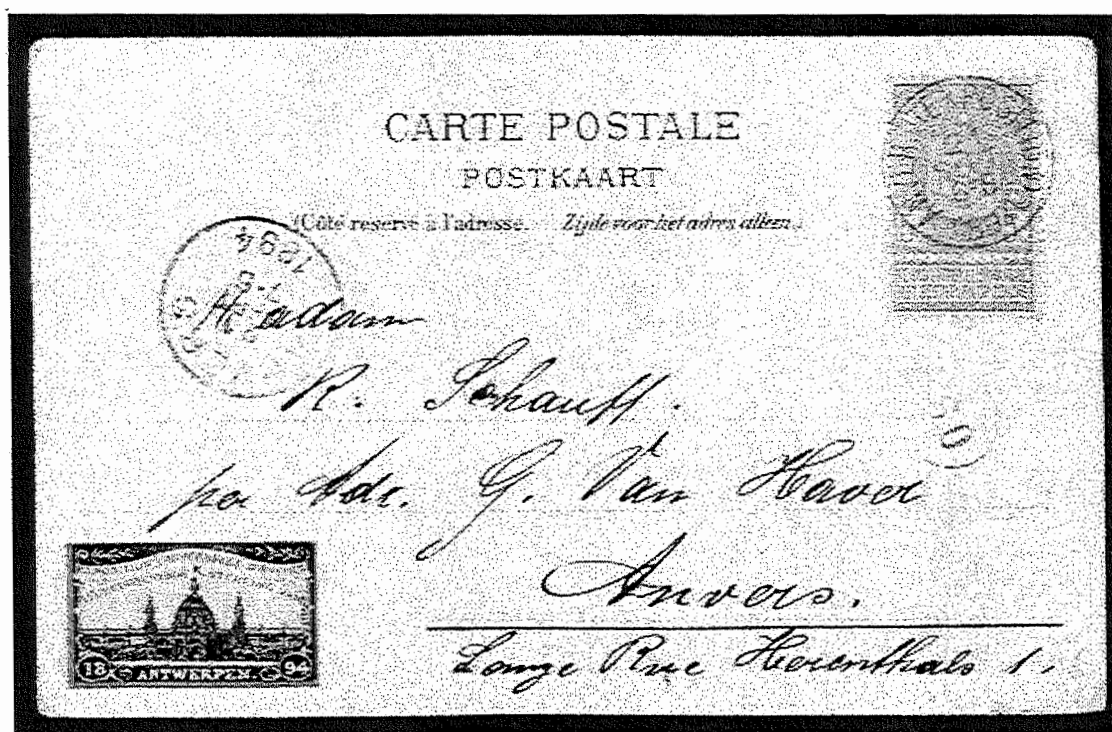 CARTE POSTALE
POSTKAART
(Côté reservé à l'adresse. Zijde voor het adres alleen.)
1894
Madam
R. Schauff.
per Adr. G. Van Haver
Anvers.
Lange Rue Herenthals 1.
18 ANTWERPEN. 94